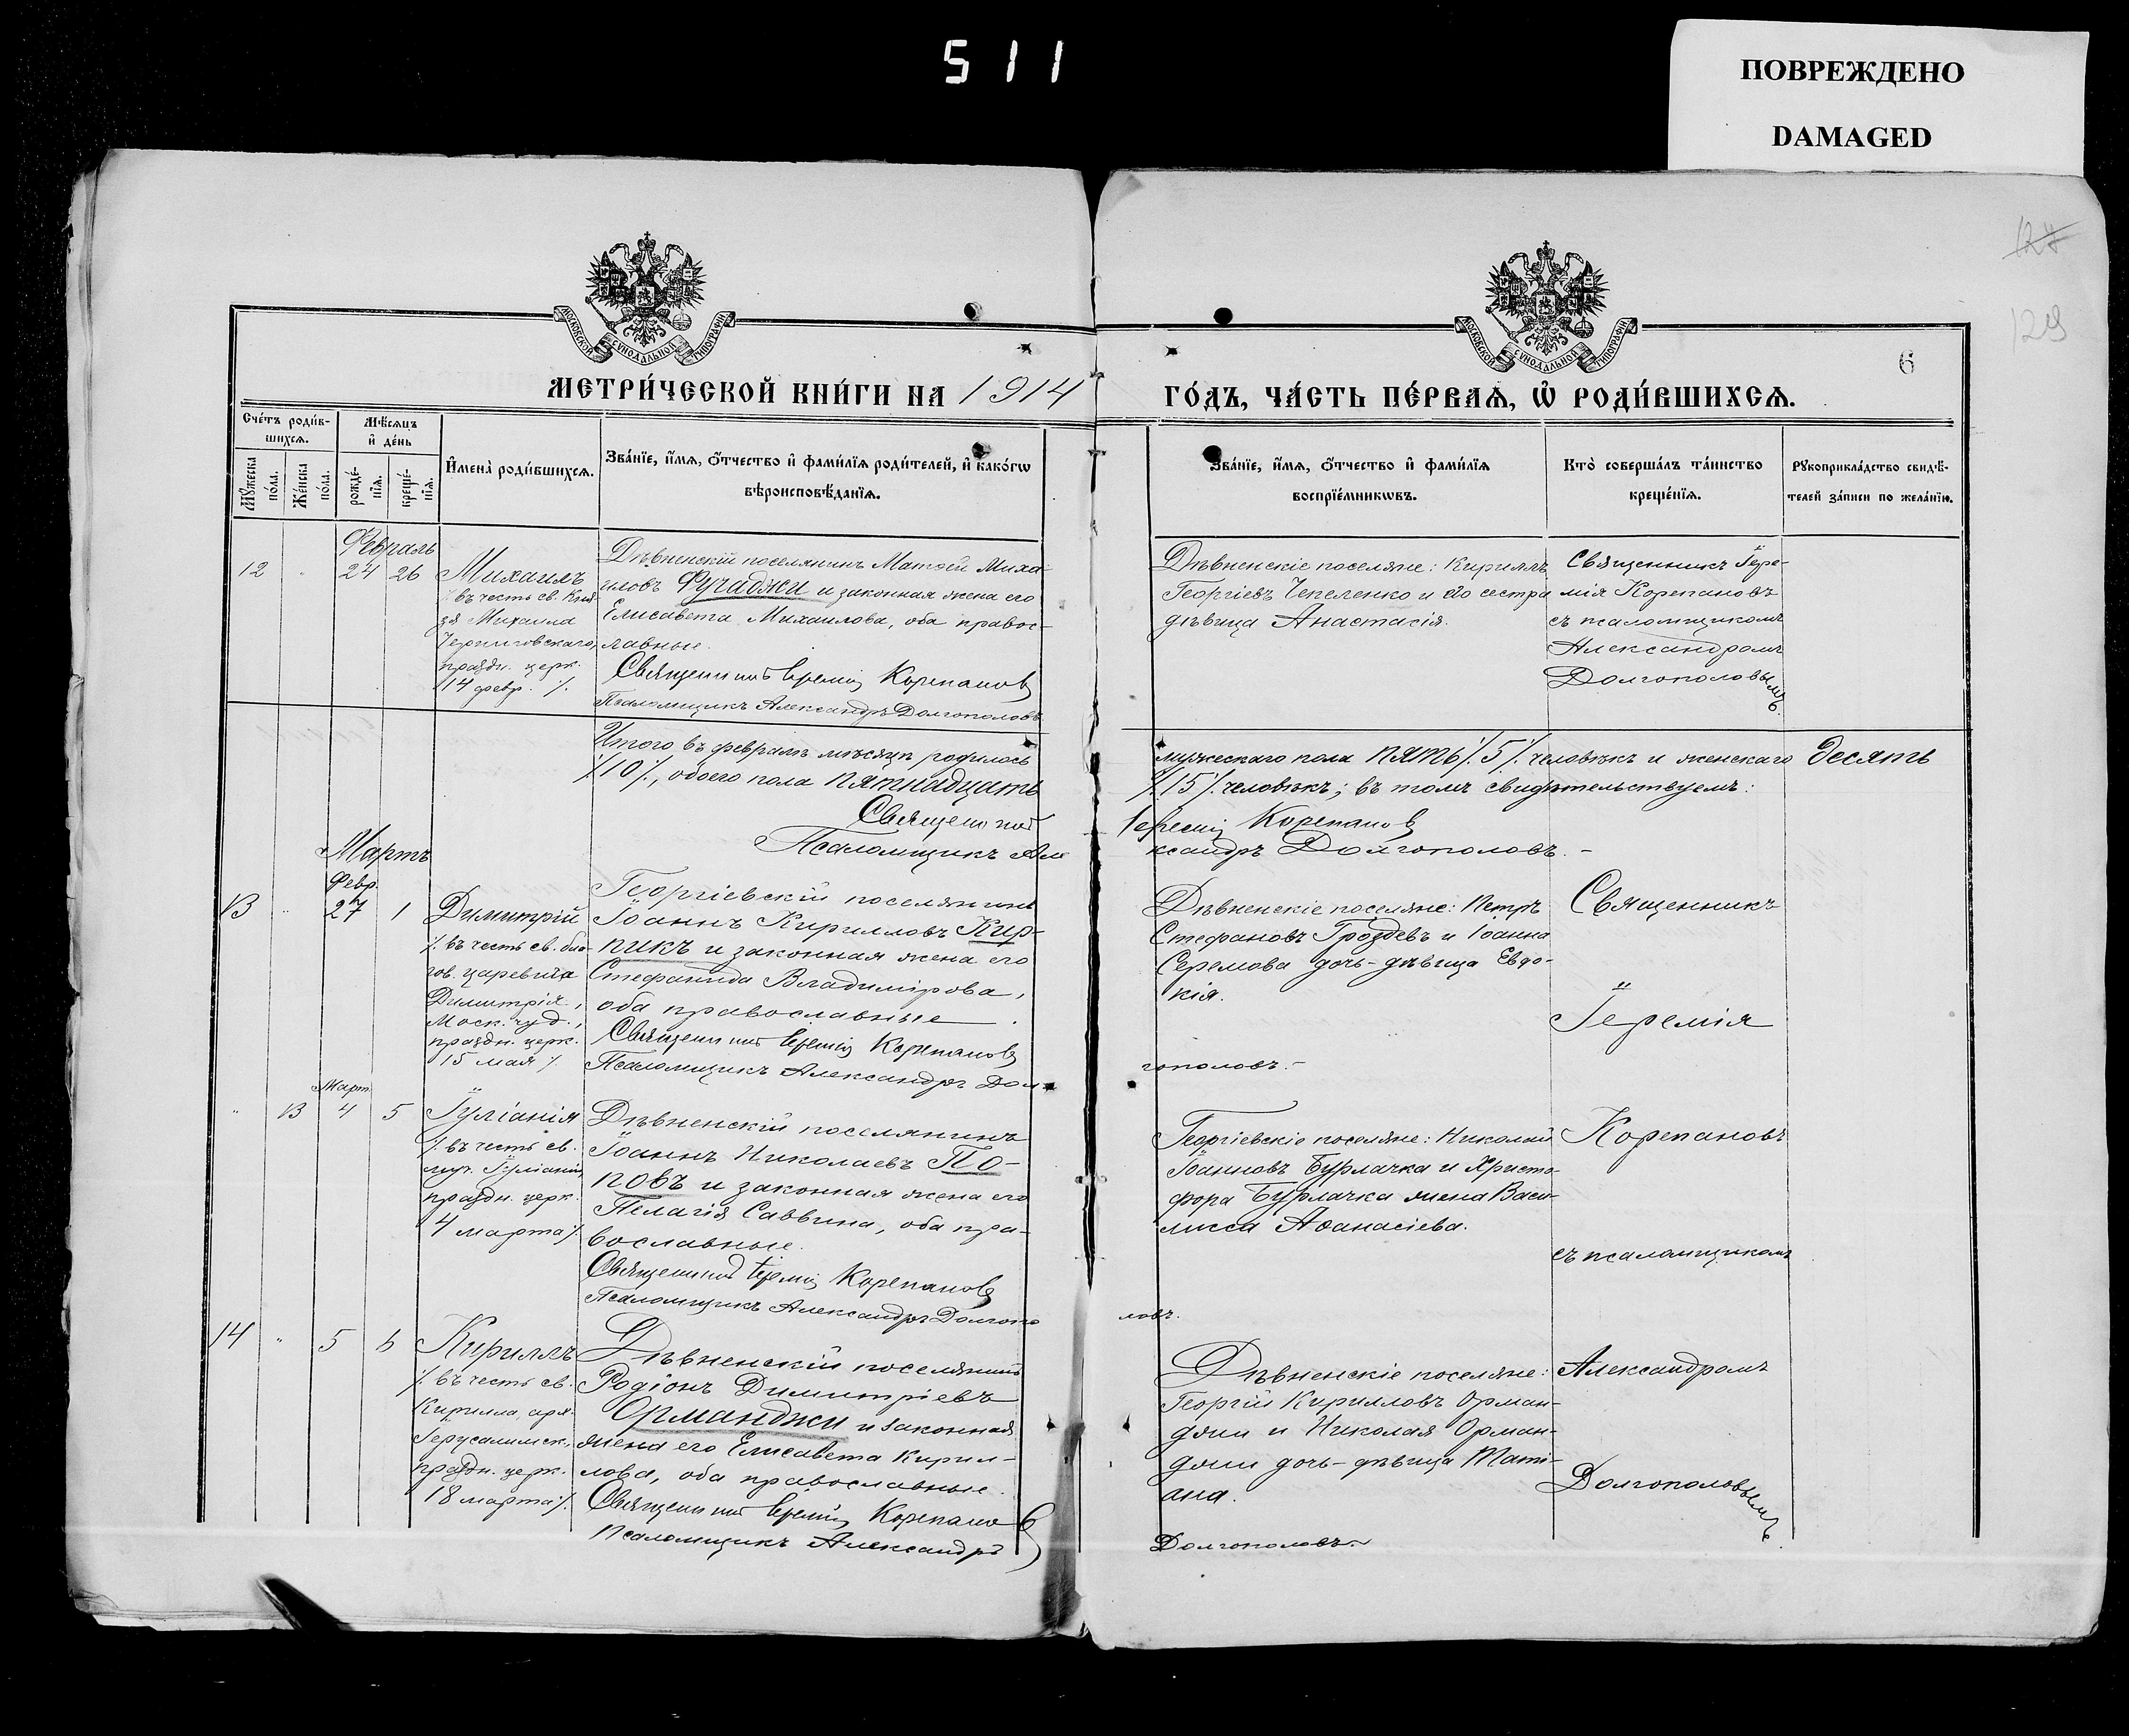 511
ПОВРЕЖДЕНО
DAMAGED
127
129
6
МОСКОВСКОЙ СѴНОДАЛЬНОЙ ТИПОГРАФІИ
МОСКОВСКОЙ СѴНОДАЛЬНОЙ ТИПОГРАФІИ
МЕТРИ́ЧЕСКОЙ КНИ́ГИ НА 1914
ГО́ДЪ, ЧА́СТЬ ПЕ́РВАѦ, Ѽ РОДИ́ВШИХСѦ.
Сче́тъ роди́в-
шихсѧ.
Мѣ́сѧцъ
и҆ де́нь
Мꙋ́жеска
по́ла.
Же́нска
по́ла.
рожде́-
нїѧ.
креще́-
нїѧ.
И҆мена̀ роди́вшихсѧ.
Зва́нїе, и҆́мѧ, ѻ҆́тчество и҆ фами́лїѧ роди́телей, и҆ како́гѡ
вѣроисповѣ́данїѧ.
Зва́нїе, и҆́мѧ, ѻ҆́тчество и҆ фами́лїѧ
воспрїе́мникѡвъ.
Кто̀ соверша́лъ та́инство
креще́нїѧ.
Рꙋкоприкла́дство свидѣ́-
телей за́писи по жела́нїю.
Февраль
12 " 24 26
Михаилъ
въ честь св. Кня-
зя Михаила
Черниговскаго,
праздн. церк.
14 февр. ./.
Дѣвненскій поселянинъ Матѳей Миха-
иловъ Фучаджи и законная жена его
Елисавета Михаилова, оба правос-
лавные.
Священникъ Іеремія Корепановъ
Псаломщикъ Александръ Долгополовъ
Дѣвненскіе поселяне: Кириллъ
Георгіевъ Чепеленко и его сестра
дѣвица Анастасія.
Священникъ Іере-
мія Корепановъ
съ псаломщикомъ
Александромъ
Долгополовымъ.
Итого въ февралѣ мѣсяцѣ родилось мужескаго пола пять ./.5./. человѣкъ и женскаго десять
./.10./., обоего пола пятнадцать ./.15./. человѣкъ; въ томъ свидѣтельствуемъ:
Священникъ Іеремія Корепановъ
Псаломщикъ Александръ Долгополовъ. –
Мартъ
Февр.
13 " 27 1
Димитрій
./. въ честь св. бла-
гов. царевича
Димитрія,
Моск. чуд.,
праздн. церк.
15 мая ./.
Георгіевскій поселянинъ
Іоаннъ Кирилловъ Кир-
пикъ и законная жена его
Стефанида Владимірова,
оба православные.
Священникъ Іеремія Корепановъ
Псаломщикъ Александръ Дол-
гополовъ. –
Дѣвненскіе поселяне: Петръ
Стефановъ Гроздевъ и Іоанна
Серемова дочь-дѣвица Евдо-
кія.
Священникъ
Іеремія
Март.
" 13 4 5
Іуліанія
./. въ честь св.
муч. Іуліаніи,
праздн. церк.
4 марта ./.
Дѣвненскій поселянинъ
Іоаннъ Николаевъ По-
повъ и законная жена его
Пелагія Саввина, оба пра-
вославные.
Священникъ Іеремія Корепановъ
Псаломщикъ Александръ Долгопо
ловъ.
Георгіевскіе поселяне: Николай
Іоанновъ Бурлачка и Христо-
фора Бурлачка жена Васи-
лисса Аѳанасіева.
Корепановъ
съ псаломщикомъ
14 " 5 6
Кириллъ
./. въ честь св.
Кирилла, арх.
Іерусалимск.,
праздн. церк.
18 марта ./.
Дѣвненскій поселянинъ
Родіонъ Димитріевъ
Орманджи и законная
жена его Елисавета Кирил-
лова, оба православные.
Священникъ Іеремія Корепановъ
Псаломщикъ Александръ
Долгополовъ. –
Дѣвненскіе поселяне:
Георгій Кирилловъ Орман-
джи и Николая Орман-
джи дочь-дѣвица Таті-
ана.
Александромъ
Долгополовымъ.